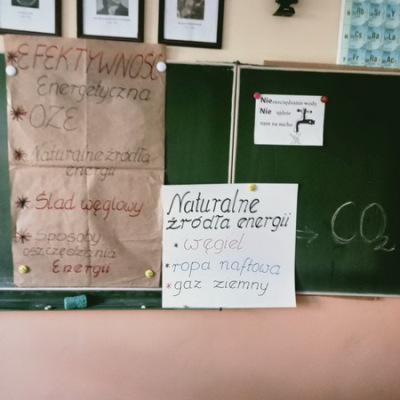 EFEKTYWNOŚĆ
Energetyczna
* OZE
* Naturalne źródła
energii
* Ślad węglowy
* Sposoby
oszczędzania
Energii
Naturalne
źródła energii
* węgiel
* ropa naftowa
* gaz ziemny
→ CO₂
Nie oszczędzanie wody
Nie
nam na sucho